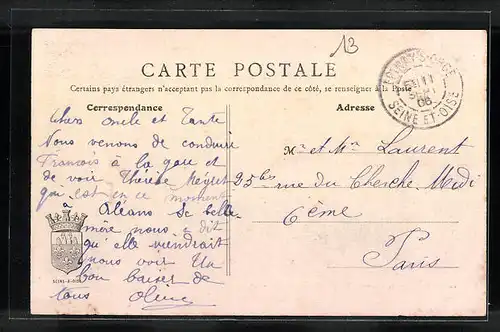 13
CARTE POSTALE
Certains pays étrangers n'acceptant pas la correspondance de ce côté, se renseigner à la Poste
Correspondance
Adresse
Chers oncle et Tante
Nous venons de conduire
François à la gare et
de voir Thérèse
qui est en ce moment
à Orléans Sa belle-
mère nous a dit
qu'elle viendrait
nous voir Un
bon baiser de
tous
Mr et Mme Laurent
25 bis rue du Cherche Midi
6ème
Paris
S-ORGE
SEINE-ET-OISE
06